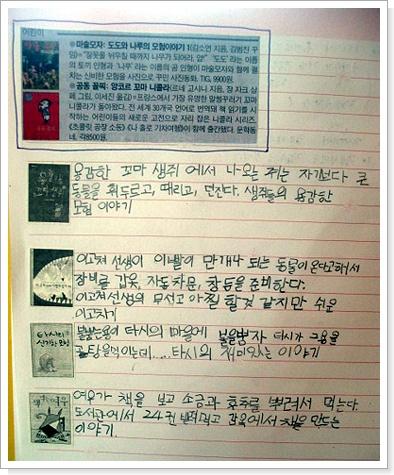 어린이
● 마술모자: 도도와 나루의 모험이야기 1(김소연 지음, 김범진 꾸
밈)="잘못을 뉘우칠 때까지 나무가 되어라, 얍!" '도도'라는 이름
의 토끼 인형과 '나루'라는 이름의 곰 인형이 마술모자와 함께 펼
치는 신비한 모험을 사진으로 꾸민 사진동화. TIG, 9900원.
● 공동 꼴찌: 앙코르 꼬마 니콜라(르네 고시니 지음, 장 자크 상
페 그림, 이세진 옮김)=프랑스에서 가장 유명한 말썽꾸러기 꼬마
니콜라가 돌아왔다. 전 세계 30개국 언어로 번역돼 책 읽기를 시
작하는 어린이들의 새로운 고전으로 자리 잡은 니콜라 시리즈.
《초콜릿 공장 소동》《나 홀로 기차여행》이 함께 출간됐다. 문학동
네, 각8500원.
용감한 꼬마 생쥐 에서 나오는 쥐는 자기보다 큰
동물을 휘두르고, 때리고, 던진다. 생쥐들의 용감한
모험 이야기
이고쳐 선생이 이빨이 만개나 되는 동물이 온다고해서
장비로 갑옷, 자동차문, 창등을 준비한다.
이고쳐선생의 무섭고 아찔 할것 같지만 쉬운
이고치기
타시의
신기한 모험
타시의 마을에
타시가 그용을
골탕을먹이는데..... 타시의 재미있는 이야기
여우가 책을 보고 소금과 후추를 뿌려서 먹는다.
도서관에서 24권 감옥에서 책을 만드는
이야기.